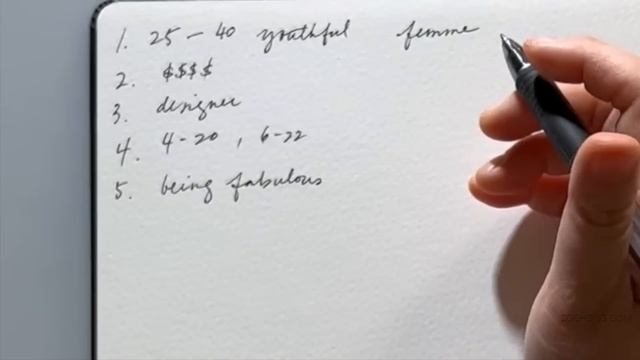 1. 25 - 40 youthful femme
2. $$$$
3. designer
4. 4-20, 6-22
5. being fabulous